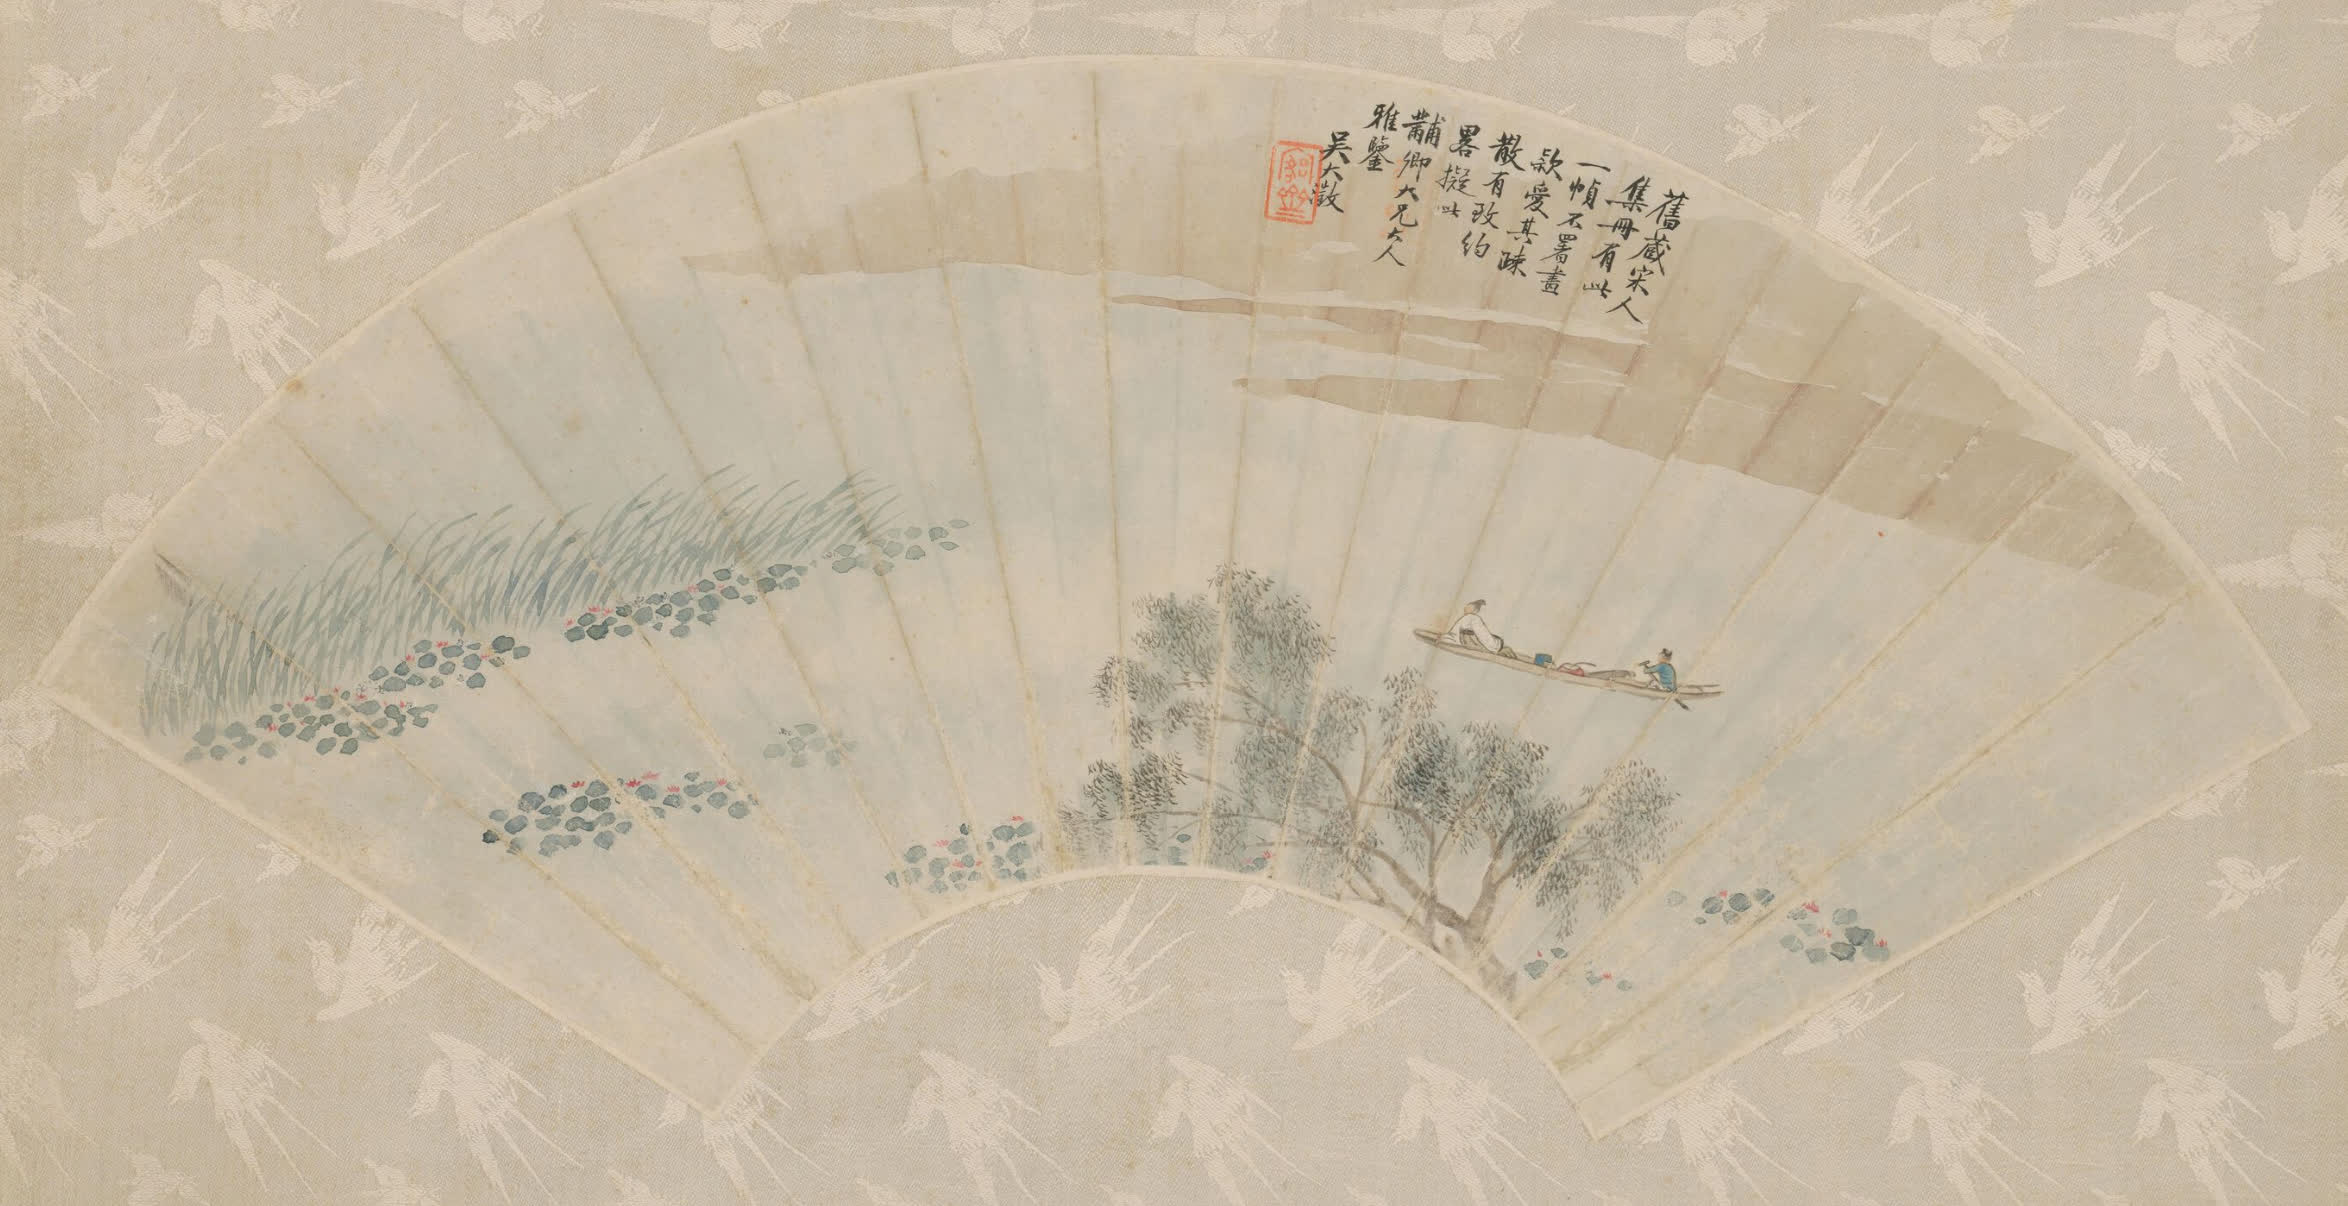 舊藏宋人
集冊有此
一幀不署畫
款愛其疎
散有致約
畧擬此
黼卿大兄大人
雅鑒
吳大澂